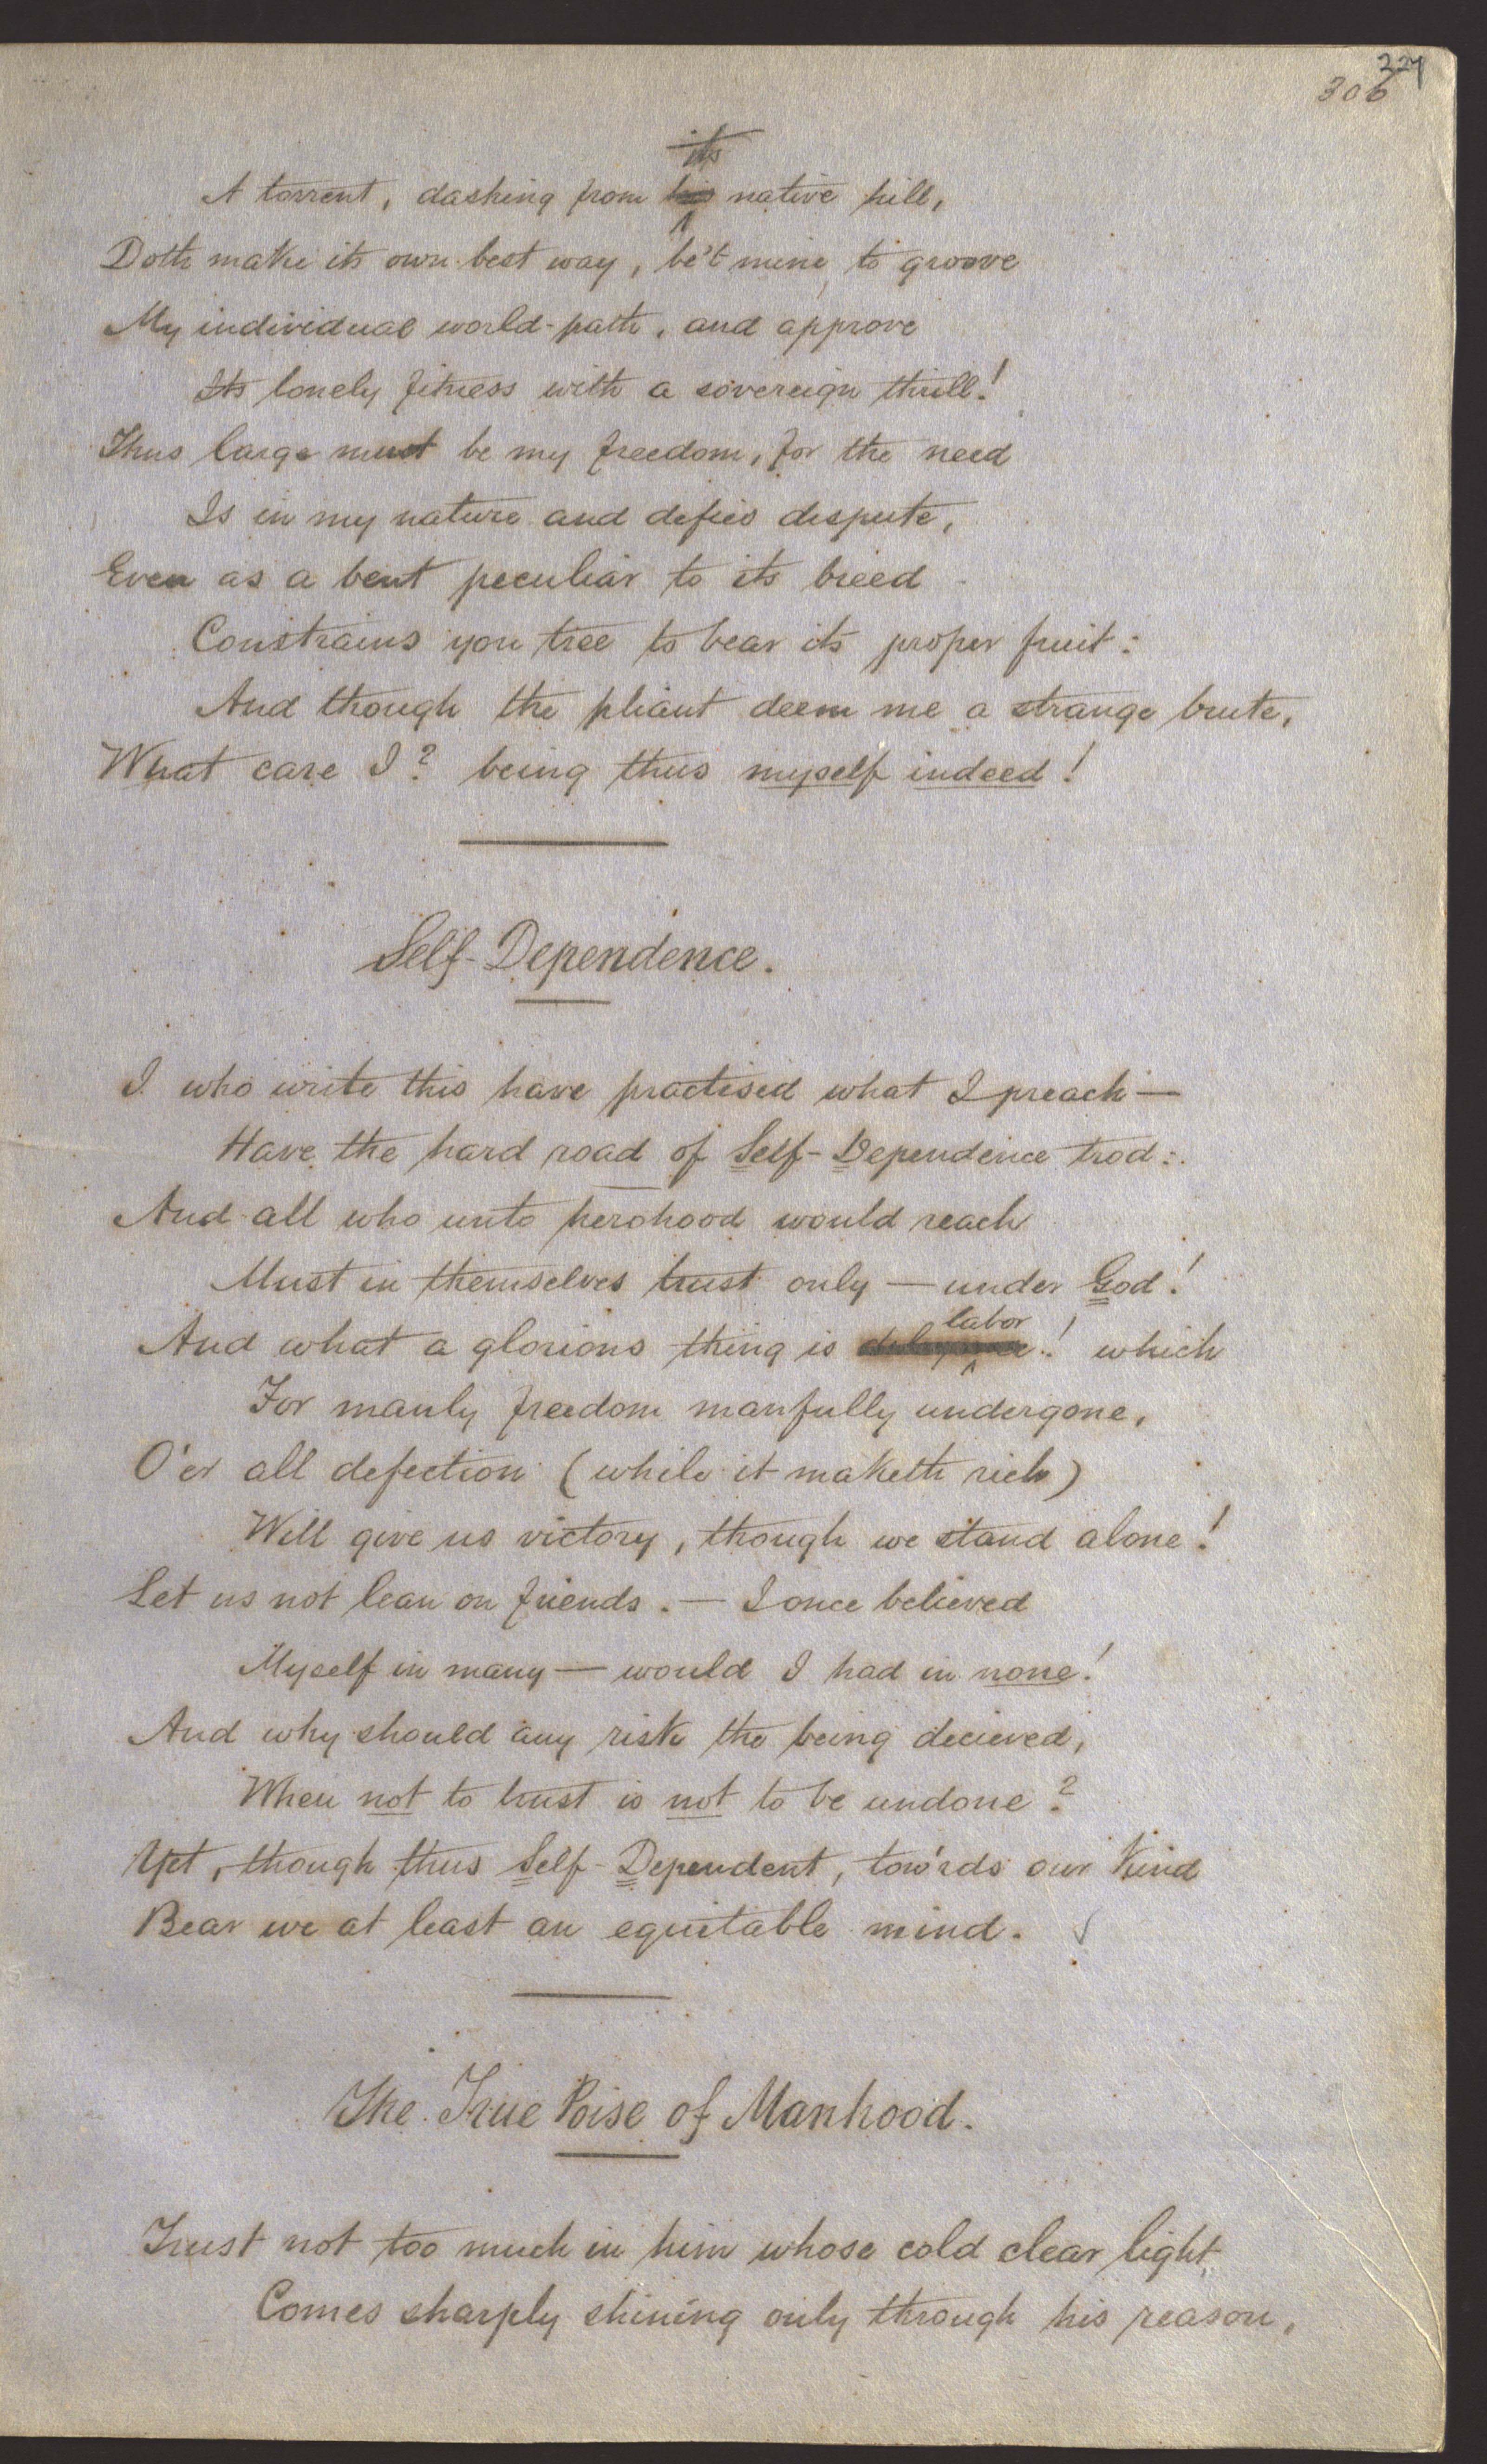 227
306
its
A torrent, dashing from his native hill,
Doth make its own best way, be't mine to groove
My individual world-path, and approve
Its lonely fitness with a sovereign thrill!
Thus large must be my freedom, for the need
Is in my nature and defies dispute,
Even as a bent peculiar to its breed
Constrains yon tree to bear its proper fruit:
And though the pliant deem me a strange brute,
What care I? being thus myself indeed!
Self-Dependence.
I who write this have practised what I preach—
Have the hard road of Self-Dependence trod:
And all who unto herohood would reach
Must in themselves trust only — under God!
labor
And what a glorious thing is ! which
For manly freedom manfully undergone,
O'er all defection (while it maketh rich)
Will give us victory, though we stand alone!
Let us not lean on friends. — I once believed
Myself in many — would I had in none!
And why should any risk the being decieved,
When not to trust is not to be undone?
Yet, though thus Self-Dependent, tow'rds our Kind
Bear we at least an equitable mind.
The True Poise of Manhood.
Trust not too much in him whose cold clear light
Comes sharply shining only through his reason,